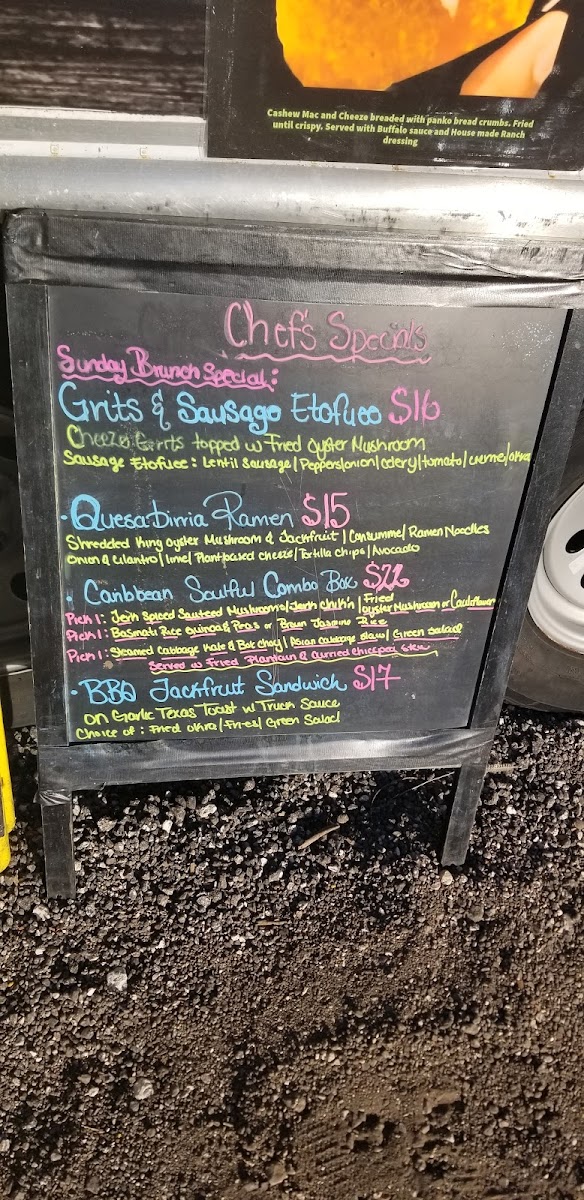 Cashew Mac and Cheeze breaded with panko bread crumbs. Fried
until crispy. Served with Buffalo sauce and House made Ranch
dressing
Chef's Specials
Sunday Brunch Special:
Grits & Sausage Etofuee $16
Cheeze Grits topped w Fried Oyster Mushroom
Sausage Etofuee: Lentil Sausage/Peppers/onion/celery/tomato/creme/okra
• Quesa-birria Ramen $15
Shredded King Oyster Mushroom & Jackfruit | Consumme/ Ramen Noodles
Onion & Cilantro/lime/ Plantbased cheeze/Tortilla Chips/Avocado
• Caribbean Soulful Combo Box $22
Pick 1: Jerk Spiced Sauteed Mushrooms/Jerk chik'n/ Fried Oyster Mushroom or Cauliflower
Pick 1: Basmati Rice Quinoa & Peas or Brown Jasmine Rice
Pick 1: Steamed Cabbage Kale & Bok choy/Asian Cabbage Slaw/ Green Salad
Served w Fried Plantain & Curried Chickpea Stew
• BBQ Jackfruit Sandwich $17
On Garlic Texas Toast w/ Truck Sauce
Choice of: Fried okra/Fries/Green Salad